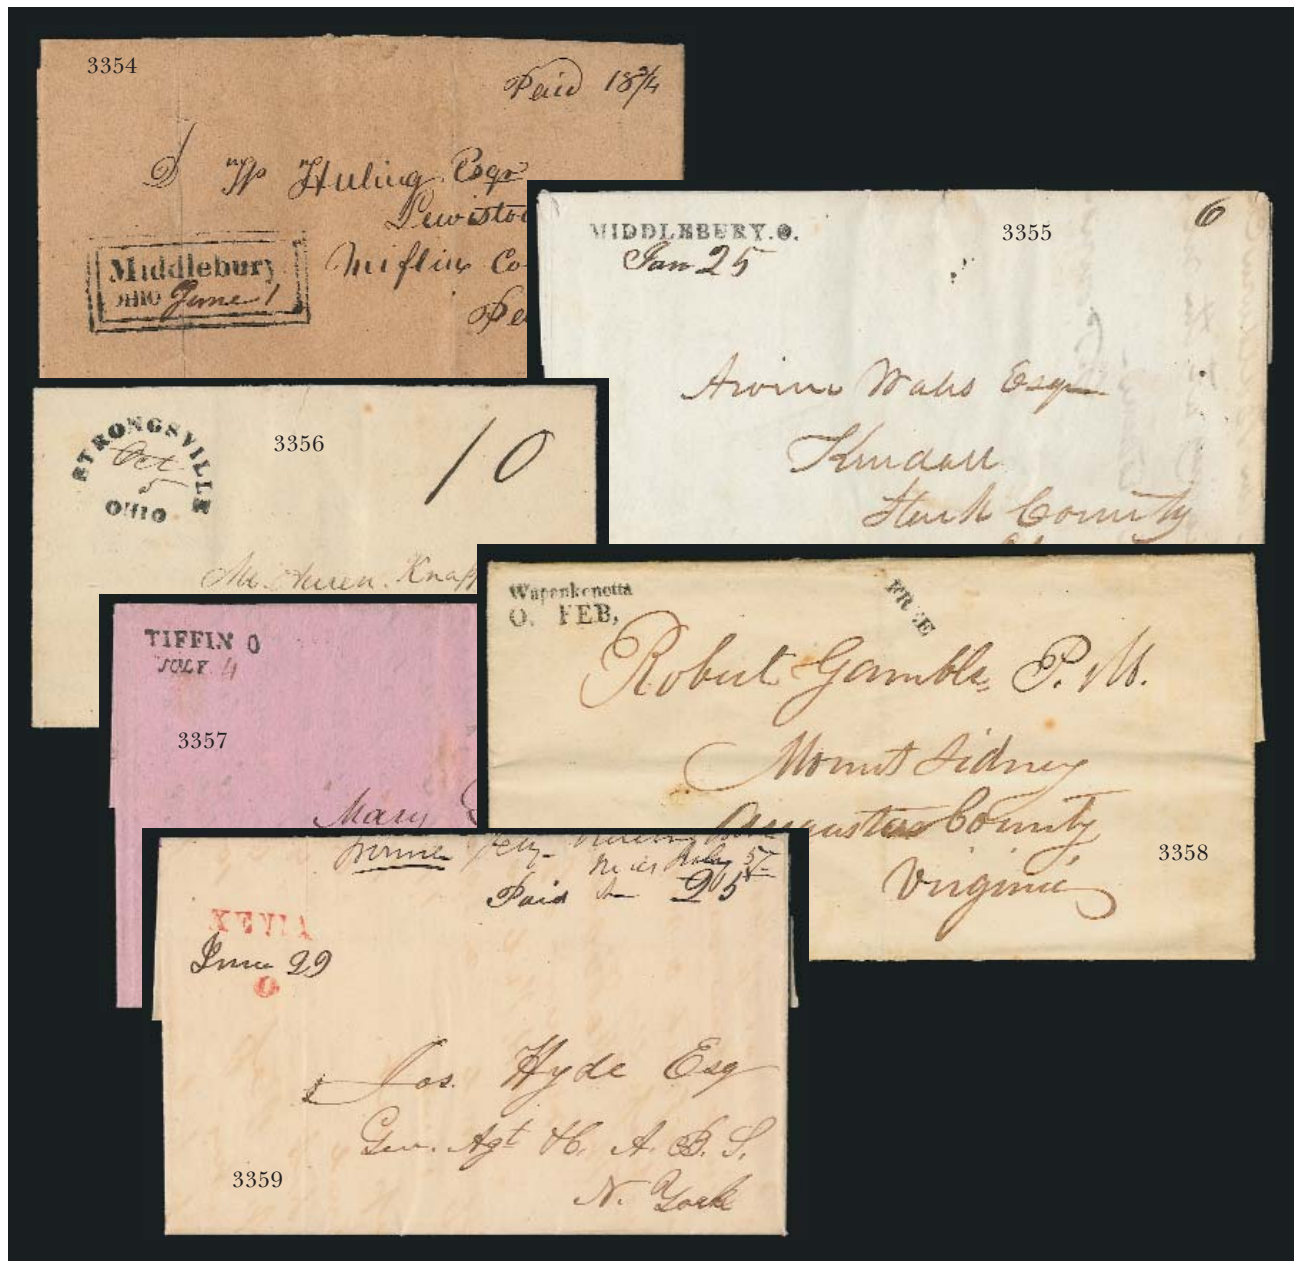 3354
Paid 18¾
W Huling Esqr
Lewisto
Mifflin Co
Pe
Middlebury
OHIO June 1
MIDDLEBURY.O.
Jan 25
3355
6
Esqr
Kendall
Stark County
STRONGSVILLE
Oct
5
OHIO
3356
10
Mr. Knapp
TIFFIN O
JULY 4
3357
Mary
Wapankonetta
O. FEB,
FREE
Robert Gamble, P. M.
Mount Sidney
Augusta County
Virginia
3358
Paid 25
XENIA
June 29
O
Jos. Hyde Esq
Gen. Agt A. B. S.
N. York
3359